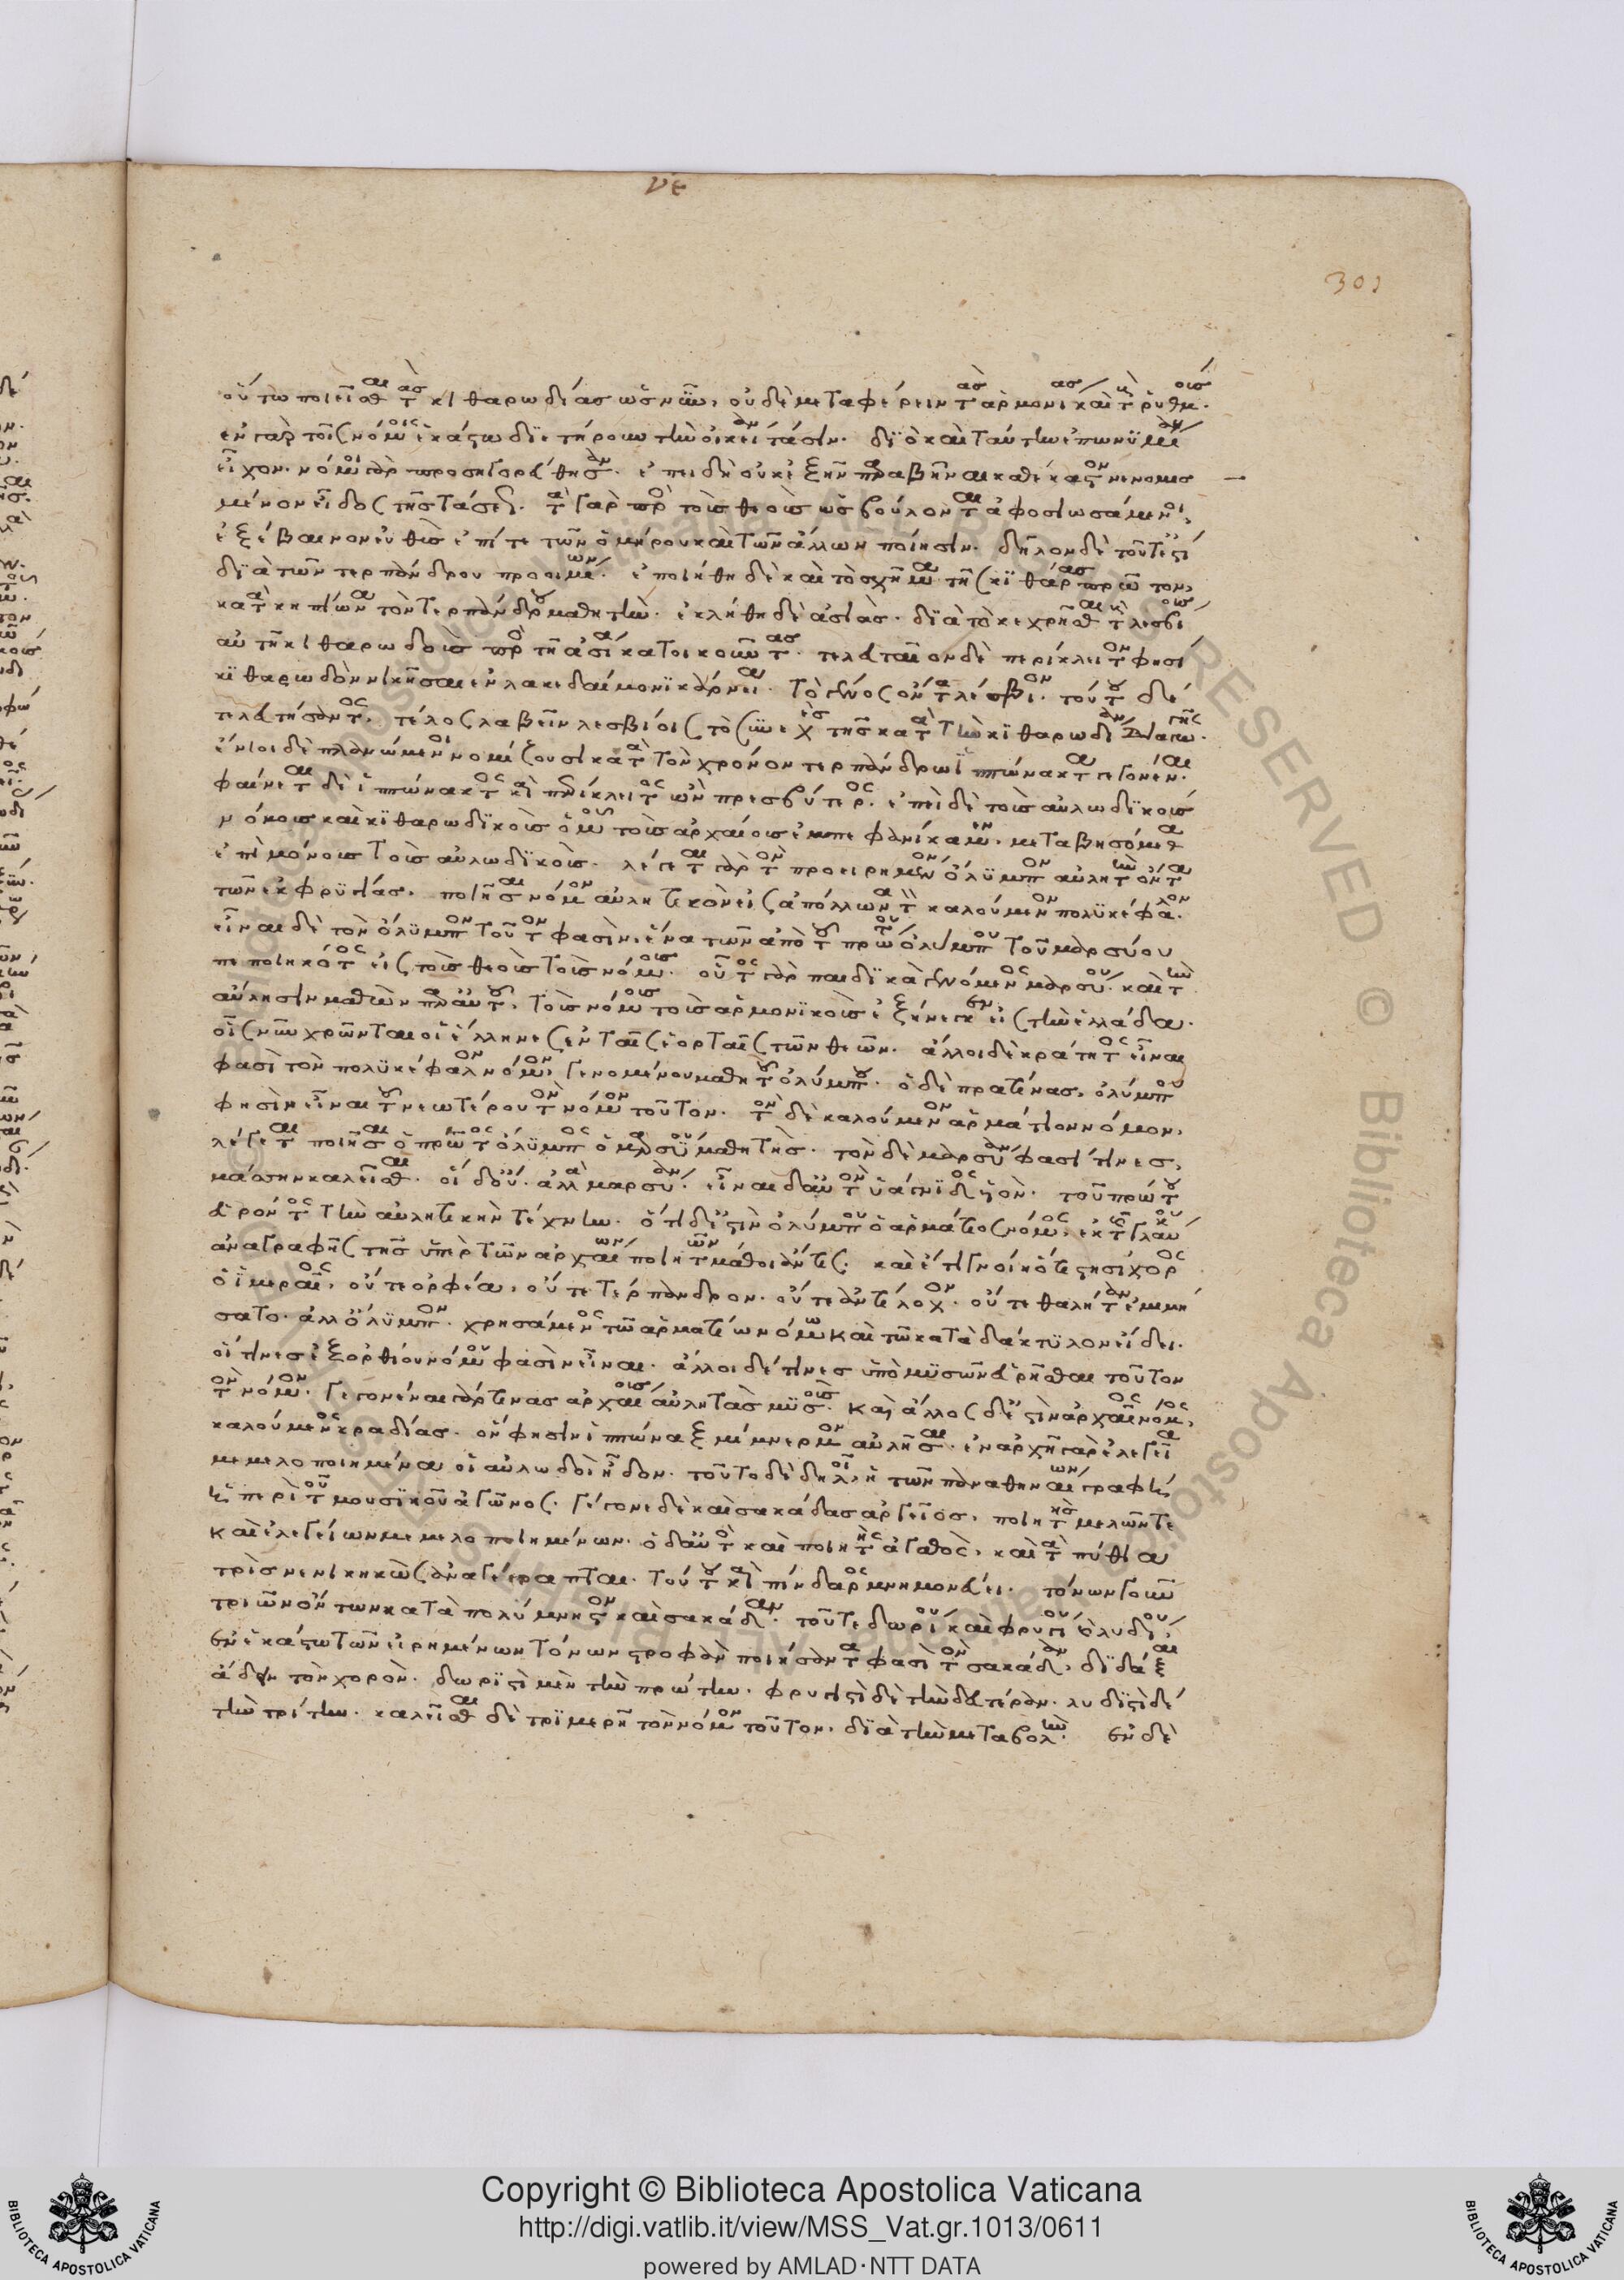 νε
301
οὕτω ποιεῖσθαι τὰς κιθαρωδίας ὡς νῦν, οὐδὲ μεταφέρειν τὰς ἁρμονίας καὶ τοὺς ῥυθμούς.
ἐν γὰρ τοῖς νόμοις ἑκάστω διετήρουν τὴν οἰκείαν τάσιν. διὸ καὶ ταύτην ἐπωνυμίαν
εἶχον. νόμοι γὰρ προσηγορεύθησαν. ἐπειδὴ οὐκ ἐξῆν παραβῆναι καθ' ἕκαστον νενομισ
μένον εἶδος τῆς τάσεως. τὰ γὰρ πρὸς τοὺς θεοὺς ὡς βούλονται ἀφοσιωσάμενοι,
ἐξέβαινον εὐθὺς ἐπί τε τὴν ὁμήρου καὶ τῶν ἄλλων ποίησιν. δῆλον δὲ τοῦτ' ἐστὶ
διὰ τῶν τερπάνδρου προοιμίων. ἐποιήθη δὲ καὶ τὸ σχῆμα τῆς κιθάρας πρῶτον,
κατὰ κηπίωνα τὸν τερπάνδρου μαθητήν. ἐκλήθη δὲ ἀσιάς. διὰ τὸ κεχρῆσθαι τοὺς λεσβίους
αὐτῇ κιθαρωδοὺς πρὸς τῇ ἀσίᾳ κατοικοῦντας. τελευταῖον δὲ περίκλειτον φησὶ
κιθαρωδὸν νικῆσαι ἐν λακεδαίμονι κάρνεια. τὸ γένος ὄντα λέσβιον. τούτου δὲ
τελευτήσαντος, τέλος λαβεῖν λεσβίοις τὸ συνεχὲς τῆς κατὰ τὴν κιθαρωδίαν διαδοχῆς.
ἔνιοι δὲ πλανώμενοι νομίζουσι κατὰ τὸν χρόνον τερπάνδρω ἱππώνακτα γεγονέναι.
φαίνεται δὲ ἱππώνακτος καὶ περίκλειτος ὢν πρεσβύτερος. ἐπεὶ δὲ τοὺς αὐλωδικοὺς
νόμους καὶ κιθαρωδικοὺς ὁμοῦ τοὺς ἀρχαίους ἐμπεφανίκαμεν. μεταβησόμεθα
ἐπὶ μόνους τοὺς αὐλωδικούς. λέγεται γὰρ τὸν προειρημένον ὄλυμπον αὐλητὴν ὄντα
τῶν ἐκ φρυγίας. ποιῆσαι νόμον αὐλητικὸν εἰς ἀπόλλωνα τὸν καλούμενον πολυκέφαλον.
εἶναι δὲ τὸν ὄλυμπον τοῦτον φασὶν, ἕνα τῶν ἀπὸ τοῦ πρώτου ὀλύμπου τοῦ μαρσύου
πεποιηκότος εἰς τοὺς θεοὺς τοὺς νόμους. οὗτος γὰρ παιδικὰ γενόμενος μαρσύου. καὶ τὴν
αὔλησιν μαθὼν παρ' αὐτοῦ, τοὺς νόμους τοὺς ἁρμονικοὺς ἐξήνεγκεν εἰς τὴν ἑλλάδα.
οἷς νῦν χρῶνται οἱ ἕλληνες ἐν ταῖς ἑορταῖς τῶν θεῶν. ἄλλοι δὲ κράτητος εἶναι
φασὶ τὸν πολυκέφαλον νόμον, γενομένου μαθητοῦ ὀλύμπου. ὁ δὲ πρατίνας, ὀλύμπου
φησὶν εἶναι τοῦ νεωτέρου τὸν νόμον τοῦτον. τὸν δὲ καλούμενον ἁρμάτιον νόμον,
λέγεται ποιῆσαι ὁ πρῶτος ὄλυμπος ὁ μαρσύου μαθητής. τὸν δὲ μαρσύαν φασί τινες,
μάσσην καλεῖσθαι. οἱ δ' οὔ. ἀλλὰ μαρσύαν. εἶναι δ' αὐτὸν ὑάγνιδος υἱὸν. τοῦ πρώτου
εὑρόντος τὴν αὐλητικὴν τέχνην. ὅτι δ' ἐστὶν ὀλύμπου ὁ ἁρμάτειος νόμος, ἐκ τῆς γλαύκου
ἀναγραφῆς τῆς ὑπὲρ τῶν ἀρχαίων ποιητῶν μάθοι ἄν τις. καὶ ἔτι γνοίη ὅτι στησίχορος
ὁ ἱμεραῖος, οὔτε ὀρφέα, οὔτε τέρπανδρον. οὔτε ἀντίλοχον. οὔτε θαλήταν ἐμιμή
σατο. ἀλλ' ὄλυμπον. χρησάμενος τῷ ἁρματείω νόμω καὶ τῷ κατὰ δάκτυλον εἴδει.
οἵ τινες ἐξ ὀρθίου νόμου φασὶν εἶναι. ἄλλοι δέ τινες ὑπὸ μυσῶν εὑρῆσθαι τοῦτον
τὸν νόμον. γεγονέναι γάρ τινας ἀρχαίους αὐλητὰς μυσούς. καὶ ἄλλος δ' ἐστὶν ἀρχαῖος νόμος,
καλούμενος κραδίας. ὅν φησιν ἱππώναξ μίμνερμον αὐλῆσαι. ἐν ἀρχῇ γὰρ ἐλεγεῖα
μεμελοποιημένα οἱ αὐλωδοὶ ᾖδον. τοῦτο δὲ δηλοῖ, ἡ τῶν παναθηναίων γραφὴ,
ἡ περὶ τοῦ μουσικοῦ ἀγῶνος. γέγονε δὲ καὶ σακάδας ἀργεῖος, ποιητὴς μελῶν τε
καὶ ἐλεγείων μεμελοποιημένων. ὁ δ' αὐτὸς καὶ ποιητὴς ἀγαθός, καὶ τὰ πύθια
τρὶς νενικηκὼς ἀναγέγραπται. τούτου καὶ πίνδαρος μνημονεύει. τόνων γοῦν
τριῶν ὄντων κατὰ πολύμνηστον καὶ σακάδαν. τοῦ τε δωρίου καὶ φρυγίου καὶ λυδίου,
ἐν ἑκάστω τῶν εἰρημένων τόνων στροφὰν ποιήσαντα φασὶ τὸν σακάδαν, διδάξαι
ᾄδειν τὸν χορὸν. δωριστὶ μὲν τὴν πρώτην. φρυγιστὶ δὲ τὴν δευτέραν. λυδιστὶ δὲ
τὴν τρίτην. καλεῖσθαι δὲ τριμερῆ τὸν νόμον τοῦτον. διὰ τὴν μεταβολήν. ἐν δὲ
Copyright © Biblioteca Apostolica Vaticana
http://digi.vatlib.it/view/MSS_Vat.gr.1013/0611
powered by AMLAD·NTT DATA